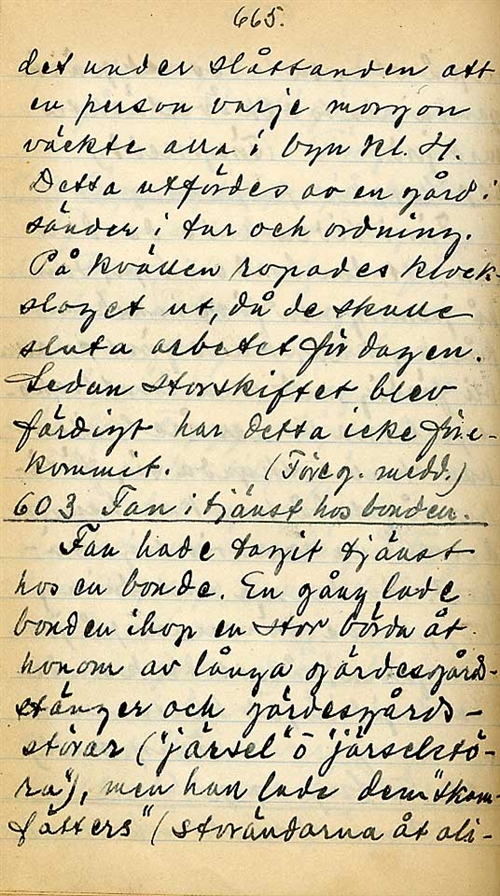 665.
det under slåttanden att
en person varje morgon
väckte alla i byn kl. 4.
Detta utfördes av en gård i
sänder i tur och ordning.
På kvällen ropades klock-
slaget ut, då de skulle
sluta arbetet för dagen.
Sedan storskiftet blev
färdigt har detta icke före-
kommit. (Föreg. medd.)
603 Fan i tjänst hos bonden.
Fan hade tagit tjänst
hos en bonde. En gång lade
bonden ihop en stor börda åt
honom av långa gärdesgård-
stänger och gärdesgårds-
störar ("järsel" o "järselstö-
ra"), men han lade dem "skam-
fätters" (storändarna åt oli-